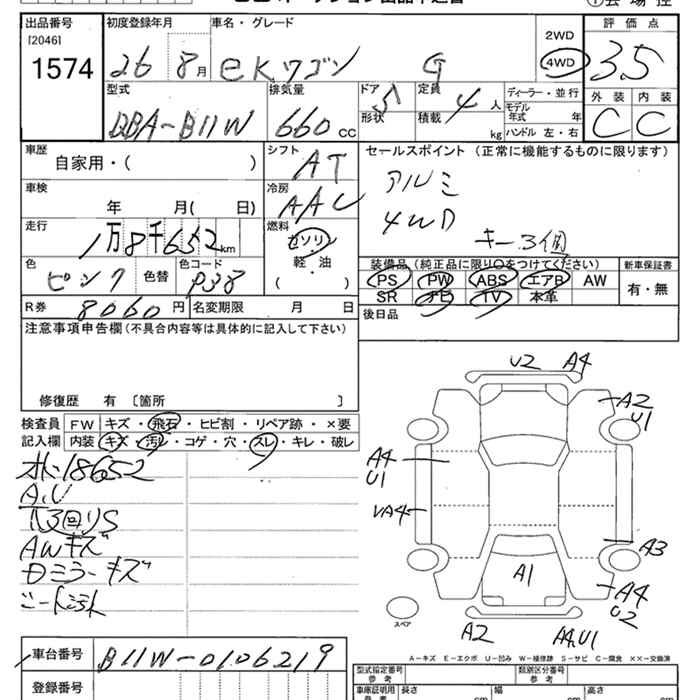 出品番号 初度登録年月 車名・グレード 2WD 評価点
[2046]
1574 26 8月 eKワゴン G 4WD 3.5
型式 排気量 ドア 定員 ディーラー・並行 外装 内装
DBA-B11W 660 CC 5 4人 モデル年式 年 C C
形状 積載 kg ハンドル 左・右
車歴 シフト セールスポイント (正常に機能するものに限ります)
自家用・( ) AT アルミ
車検 冷房
年 月( 日) AAC 4WD
走行 燃料 キー3個
1万8千652km ガソリン
軽・油
( )
色 色替 色コード 装備品(純正品に限り○をつけてください) 新車保証書
ピンク P38 PS PW ABS エアB AW 有・無
SR ナビ TV 本革
R券 8060円 名変期限 月 日 後日品
注意事項申告欄(不具合内容等は具体的に記入して下さい)
修復歴 有 〔箇所 〕
検査員 FW キズ・飛石・ヒビ割・リペア跡・×要
記入欄 内装 キズ・汚レ・コゲ・穴・スレ・キレ・破レ
18652
A.U
AWキズ
Dミラーキズ
シート汚れ
U2 A4
A2
U1
A4
U1
A4
A3
A1
A4
U2
スペア
A2 A4,U1
A-キズ E-エクボ U-凹み W-補修跡 S-サビ C-腐食 ××-交換済
車台番号 B11W-0106219
型式指定番号 参考 類別区分番号 参考
登録番号 車庫証明用 参考 長さ cm 幅 cm 高さ cm